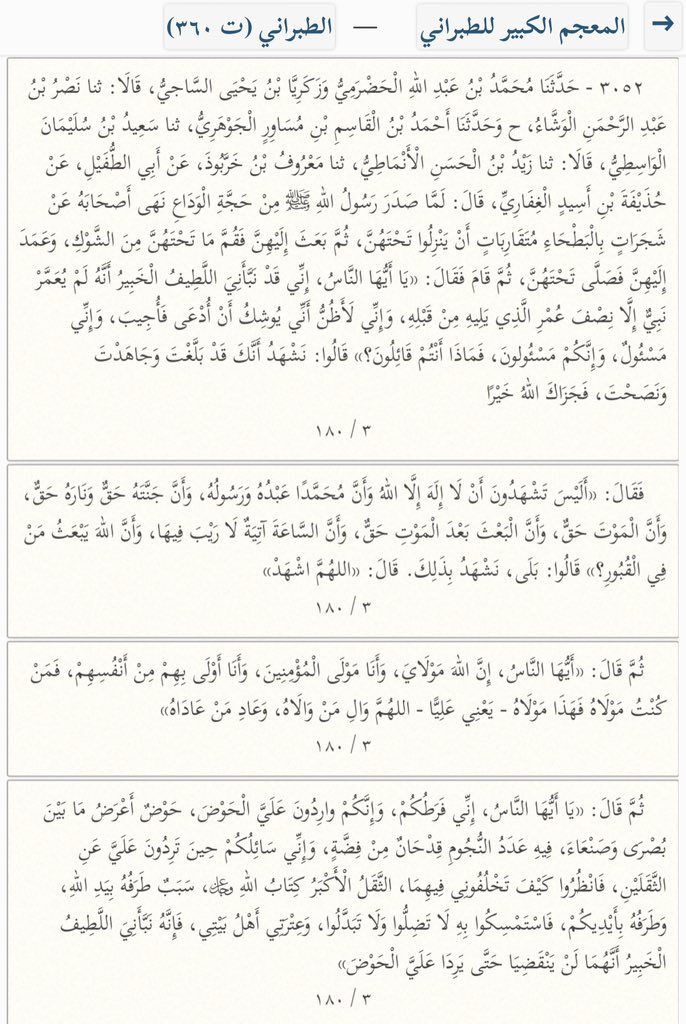 → المعجم الكبير للطبراني — الطبراني (ت ٣٦٠)
٣٠٥٢ - حَدَّثَنَا مُحَمَّدُ بْنُ عَبْدِ اللهِ الْحَضْرَمِيُّ وَزَكَرِيَّا بْنُ يَحْيَى السَّاجِيُّ، قَالَا: ثنا نَصْرُ بْنُ
عَبْدِ الرَّحْمَنِ الْوَشَّاءُ، ح وَحَدَّثَنَا أَحْمَدُ بْنُ الْقَاسِمِ بْنِ مُسَاوِرٍ الْجَوْهَرِيُّ، ثنا سَعِيدُ بْنُ سُلَيْمَانَ
الْوَاسِطِيُّ، قَالَا: ثنا زَيْدُ بْنُ الْحَسَنِ الْأَنْمَاطِيُّ، ثنا مَعْرُوفُ بْنُ خَرَّبُوذَ، عَنْ أَبِي الطُّفَيْلِ، عَنْ
حُذَيْفَةَ بْنِ أَسِيدٍ الْغِفَارِيِّ، قَالَ: لَمَّا صَدَرَ رَسُولُ اللهِ ﷺ مِنْ حَجَّةِ الْوَدَاعِ نَهَى أَصْحَابَهُ عَنْ
شَجَرَاتٍ بِالْبَطْحَاءِ مُتَقَارِبَاتٍ أَنْ يَنْزِلُوا تَحْتَهُنَّ، ثُمَّ بَعَثَ إِلَيْهِنَّ فَقُمَّ مَا تَحْتَهُنَّ مِنَ الشَّوْكِ، وَعَمَدَ
إِلَيْهِنَّ فَصَلَّى تَحْتَهُنَّ، ثُمَّ قَامَ فَقَالَ: «يَا أَيُّهَا النَّاسُ، إِنِّي قَدْ نَبَّأَنِيَ اللَّطِيفُ الْخَبِيرُ أَنَّهُ لَمْ يُعَمَّرْ
نَبِيٌّ إِلَّا نِصْفَ عُمْرِ الَّذِي يَلِيهِ مِنْ قَبْلِهِ، وَإِنِّي لَأَظُنُّ أَنِّي يُوشِكُ أَنْ أُدْعَى فَأُجِيبَ، وَإِنِّي
مَسْئُولٌ، وَإِنَّكُمْ مَسْئُولونَ، فَمَاذَا أَنْتُمْ قَائِلُونَ؟» قَالُوا: نَشْهَدُ أَنَّكَ قَدْ بَلَّغْتَ وَجَاهَدْتَ
وَنَصَحْتَ، فَجَزَاكَ اللهُ خَيْرًا
٣ / ١٨٠
فَقَالَ: «أَلَيْسَ تَشْهَدُونَ أَنْ لَا إِلَهَ إِلَّا اللهُ وَأَنَّ مُحَمَّدًا عَبْدُهُ وَرَسُولُهُ، وَأَنَّ جَنَّتَهُ حَقٌّ وَنَارَهُ حَقٌّ،
وَأَنَّ الْمَوْتَ حَقٌّ، وَأَنَّ الْبَعْثَ بَعْدَ الْمَوْتِ حَقٌّ، وَأَنَّ السَّاعَةَ آتِيَةٌ لَا رَيْبَ فِيهَا، وَأَنَّ اللهَ يَبْعَثُ مَنْ
فِي الْقُبُورِ؟» قَالُوا: بَلَى، نَشْهَدُ بِذَلِكَ. قَالَ: «اللهُمَّ اشْهَدْ»
٣ / ١٨٠
ثُمَّ قَالَ: «أَيُّهَا النَّاسُ، إِنَّ اللهَ مَوْلَايَ، وَأَنَا مَوْلَى الْمُؤْمِنِينَ، وَأَنَا أَوْلَى بِهِمْ مِنْ أَنْفُسِهِمْ، فَمَنْ
كُنْتُ مَوْلَاهُ فَهَذَا مَوْلَاهُ - يَعْنِي عَلِيًّا - اللهُمَّ وَالِ مَنْ وَالَاهُ، وَعَادِ مَنْ عَادَاهُ»
٣ / ١٨٠
ثُمَّ قَالَ: «يَا أَيُّهَا النَّاسُ، إِنِّي فَرَطُكُمْ، وَإِنَّكُمْ وارِدُونَ عَلَيَّ الْحَوْضَ، حَوْضٌ أَعْرَضُ مَا بَيْنَ
بُصْرَى وَصَنْعَاءَ، فِيهِ عَدَدُ النُّجُومِ قِدْحَانٌ مِنْ فِضَّةٍ، وَإِنِّي سَائِلُكُمْ حِينَ تَرِدُونَ عَلَيَّ عَنِ
الثَّقَلَيْنِ، فَانْظُرُوا كَيْفَ تَخْلُفُونِي فِيهِمَا، الثَّقَلُ الْأَكْبَرُ كِتَابُ اللهِ ﷿، سَبَبٌ طَرَفُهُ بِيَدِ اللهِ،
وَطَرَفُهُ بِأَيْدِيكُمْ، فَاسْتَمْسِكُوا بِهِ لَا تَضِلُّوا وَلَا تَبَدَّلُوا، وَعِتْرَتِي أَهْلُ بَيْتِي، فَإِنَّهُ نَبَّأَنِيَ اللَّطِيفُ
الْخَبِيرُ أَنَّهُمَا لَنْ يَنْقَضِيَا حَتَّى يَرِدَا عَلَيَّ الْحَوْضَ»
٣ / ١٨٠